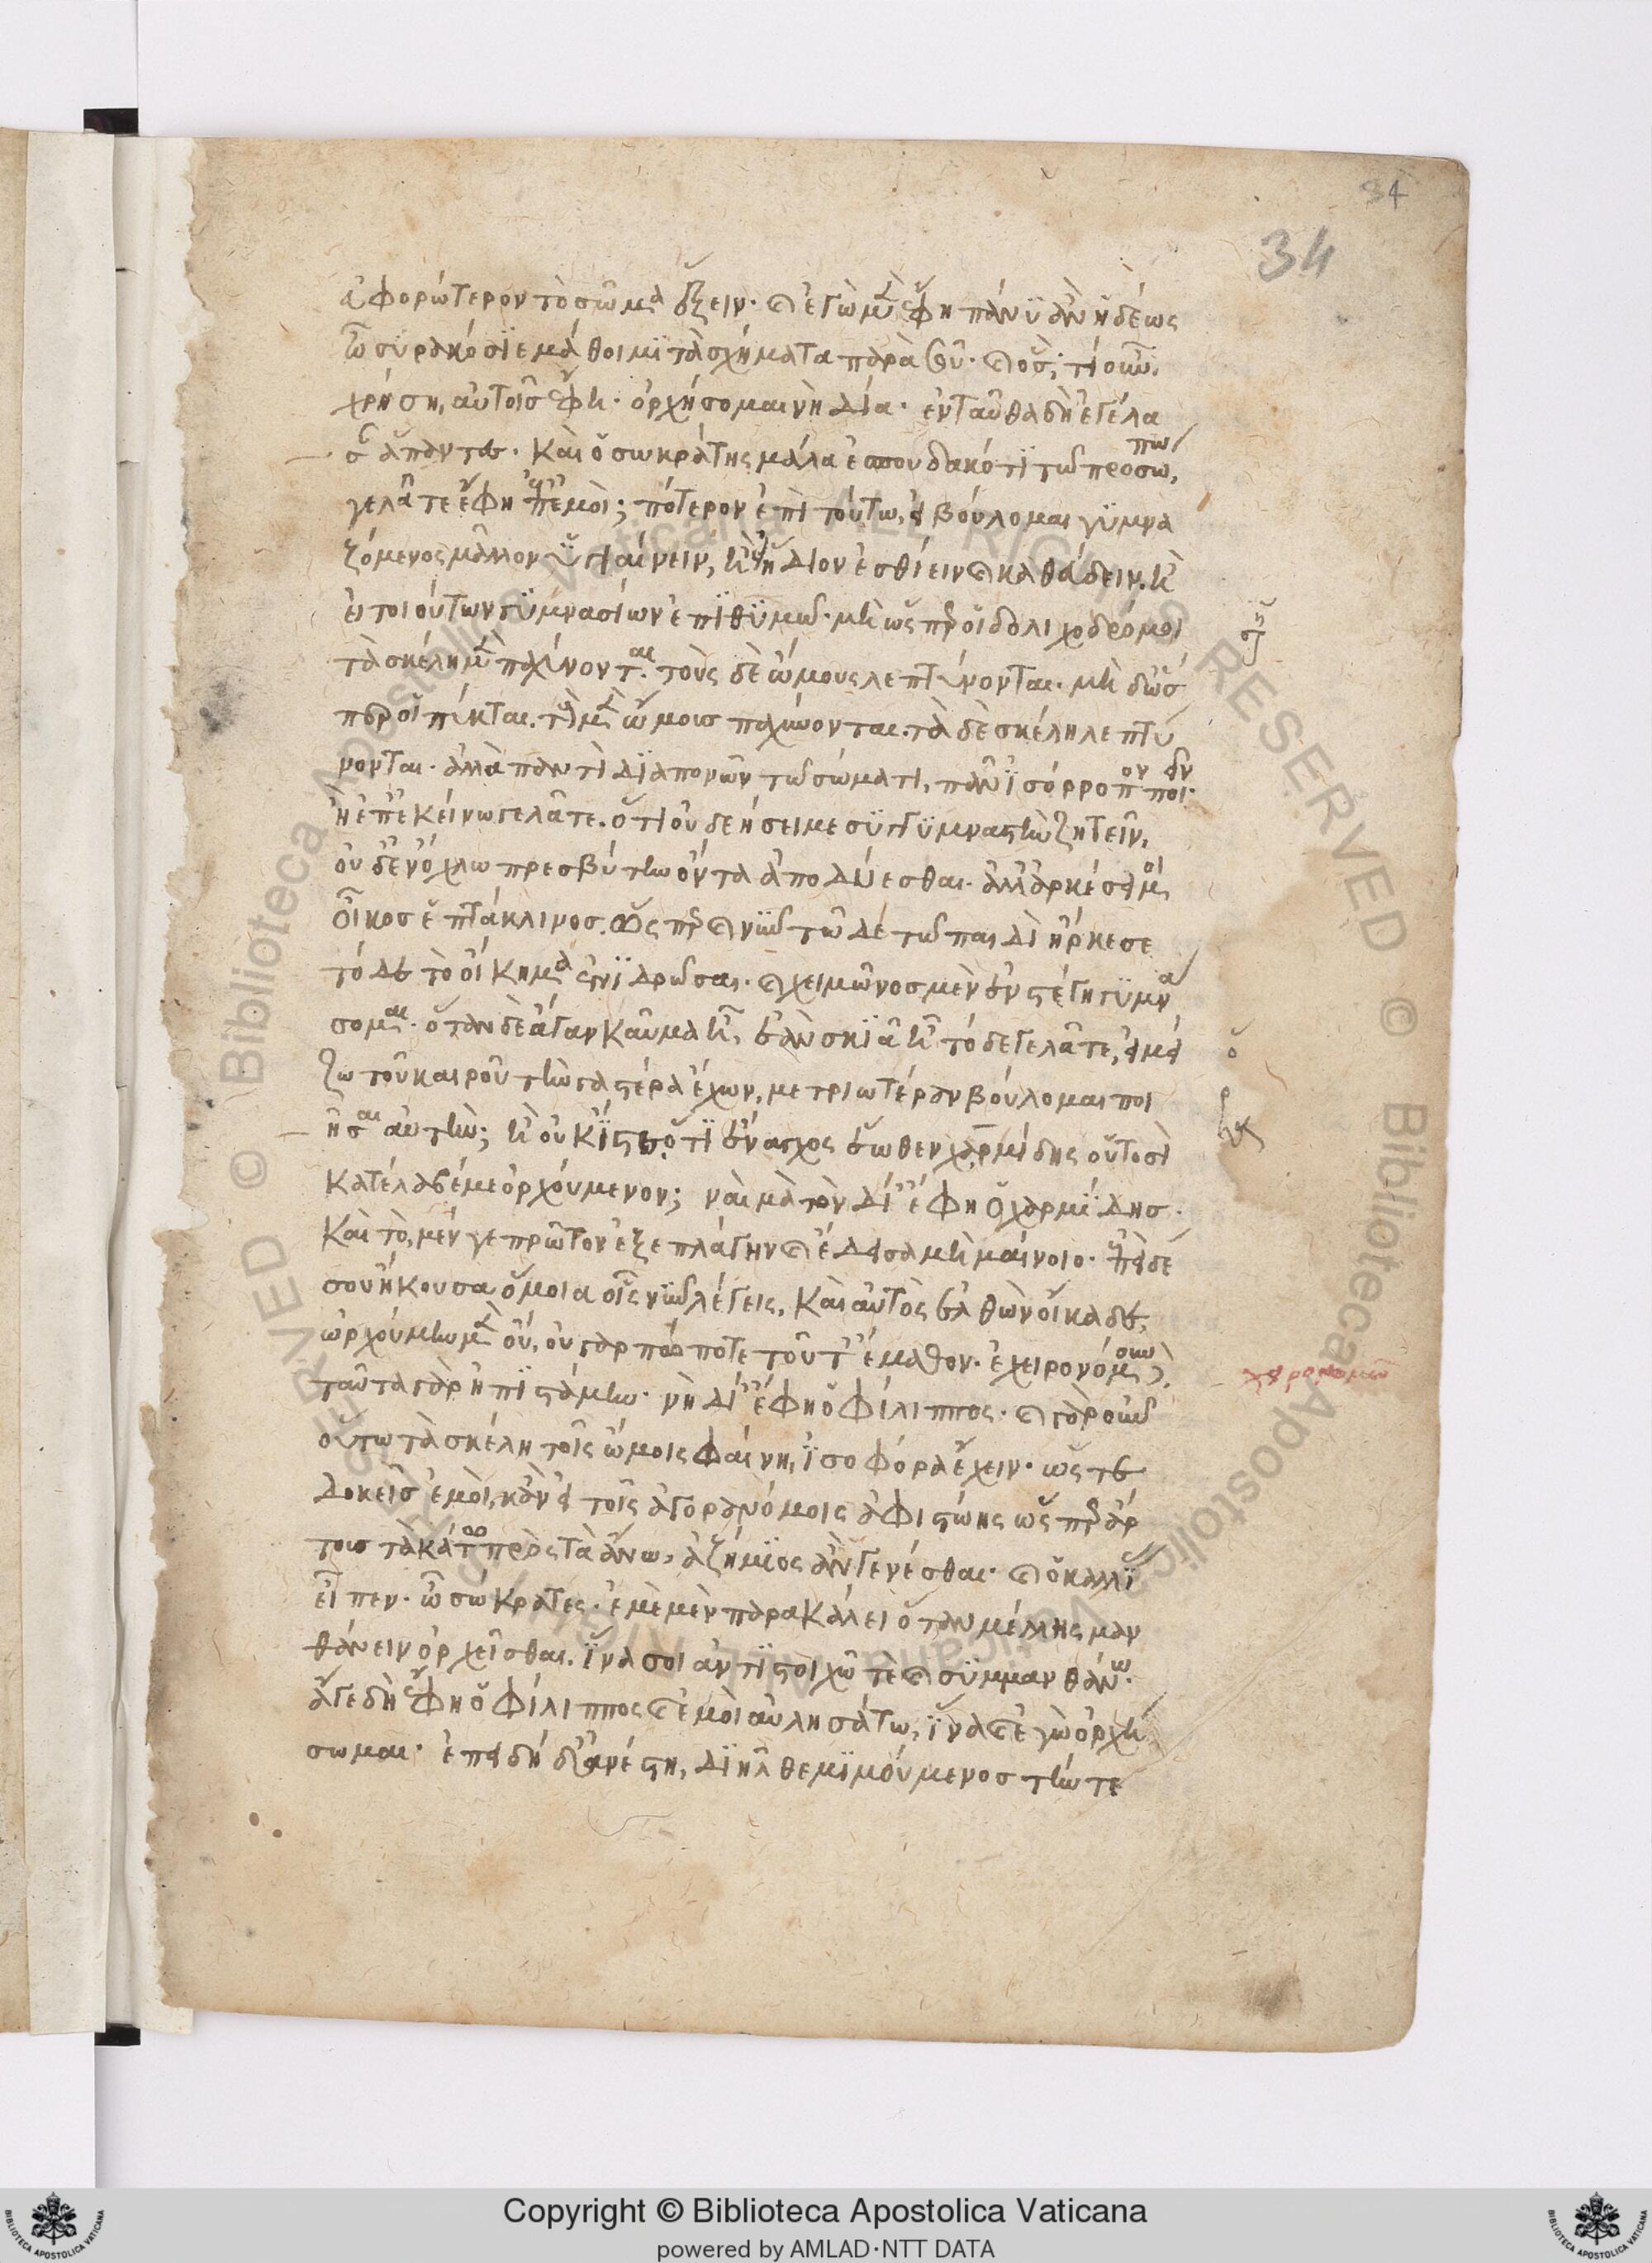 34
34
ἀφορώτερον τὸ σῶμα ἕξειν· καὶ ἐγὼ μὲν ἔφη πάνυ ἂν ἡδέως
ὦ συρακόσιε μάθοιμι τὰ σχήματα παρὰ σοῦ· καὶ ὅς; τί οὖν
χρήση, αὐτοῖς ἔφη· ὀρχήσομαι νὴ Δία· ἐνταῦθα δὴ ἐγέλα
σαν ἅπαντες· Καὶ ὁ σωκράτης μάλα ἐσπουδακότι τῶ προσώπω,
γελᾶτε ἔφη ἐπ' ἐμοὶ; πότερον ἐπὶ τούτω, εἰ βούλομαι γυμνα
ζόμενος μᾶλλον ὑγιαίνειν, ἢ ἥδιον ἐσθίειν καὶ καθεύδειν. ἢ
εἰ τοιούτων γυμνασίων ἐπιθυμῶ· μὴ ὥσπερ οἱ δολιχοδρόμοι
τὰ σκέλη μὲν παχύνονται· τοὺς δὲ ὤμους λεπτύνονται· μὴ δ' ὥσ
περ οἱ πύκται. τοὺς μὲν ὤμους παχύνονται. τὰ δὲ σκέλη λεπτύ
νονται· ἀλλὰ παντὶ διαπονῶν τῶ σώματι, πᾶν ἰσόρροπον ποιεῖν·
ἢ ἐπ' ἐκείνω γελᾶτε. ὅτι οὐ δεήσει με συγγυμναστὴν ζητεῖν,
οὐδ' ἐν ὄχλω πρεσβύτην ὄντα ἀποδύεσθαι. ἀλλ' ἀρκέσει μοι
οἶκος ἑπτάκλινος. ὥσπερ καὶ νῦν τῶδε τῶ παιδὶ ἤρκεσε
τόδε τὸ οἴκημα ἐνιδρῶσαι· καὶ χειμῶνος μὲν ἐν στέγη γυμνά
σομαι· ὅταν δὲ ἄγαν καῦμα ἦ, ἐν σκιᾶ ἢ τόδε γελᾶτε, εἰ μεί
ζω τοῦ καιροῦ τὴν γαστέρα ἔχων, μετριωτέραν βούλομαι ποι
ῆσαι αὐτὴν; ἢ οὐκ ἴστε ὅτι ἔναγχος ἕωθεν χαρμίδης οὑτοσὶ
κατέλαβέ με ὀρχούμενον; ναὶ μὰ τὸν Δί' ἔφη ὁ χαρμίδης·
Καὶ τὸ μέν γε πρῶτον ἐξεπλάγην καὶ ἔδεισα μὴ μαίνοιο· ἐπεὶ δέ
σου ἤκουσα ὅμοια οἷς νῦν λέγεις, Καὶ αὐτὸς ἐλθὼν οἴκαδε,
ὠρχούμην μὲν οὔ, οὐ γὰρ πώποτε τοῦτ' ἔμαθον· ἐχειρονόμουν δέ,
ταῦτα γὰρ ἠπιστάμην· νὴ Δί' ἔφη ὁ φίλιππος· καὶ γὰρ οὖν
οὕτω τὰ σκέλη τοῖς ὤμοις φαίνη, ἰσοφόρα ἔχειν· ὥστε
δοκεῖς ἐμοὶ, κἂν εἰ τοῖς ἀγορανόμοις ἀφιστώης ὥσπερ ἄρ
τους τὰ κάτω πρὸς τὰ ἄνω, ἀζήμιος ἂν γενέσθαι· καὶ ὁ καλλί
εἶπεν· ὦ σώκρατες· ἐμὲ μὲν παρακάλει ὅταν μέλλης μαν
θάνειν ὀρχεῖσθαι, ἵνα σοι ἀντιστοιχῶ τὲ καὶ συμμανθάνω·
ἄγε δὴ ἔφη ὁ φίλιππος καὶ ἐμοὶ αὐλησάτω, ἵνα καὶ ἐγὼ ὀρχή
σωμαι· ἐπειδὴ δ' ἀνέστη, διῆλθε μιμούμενος τήν τε
χειρονομεῖν
Copyright © Biblioteca Apostolica Vaticana
powered by AMLAD·NTT DATA